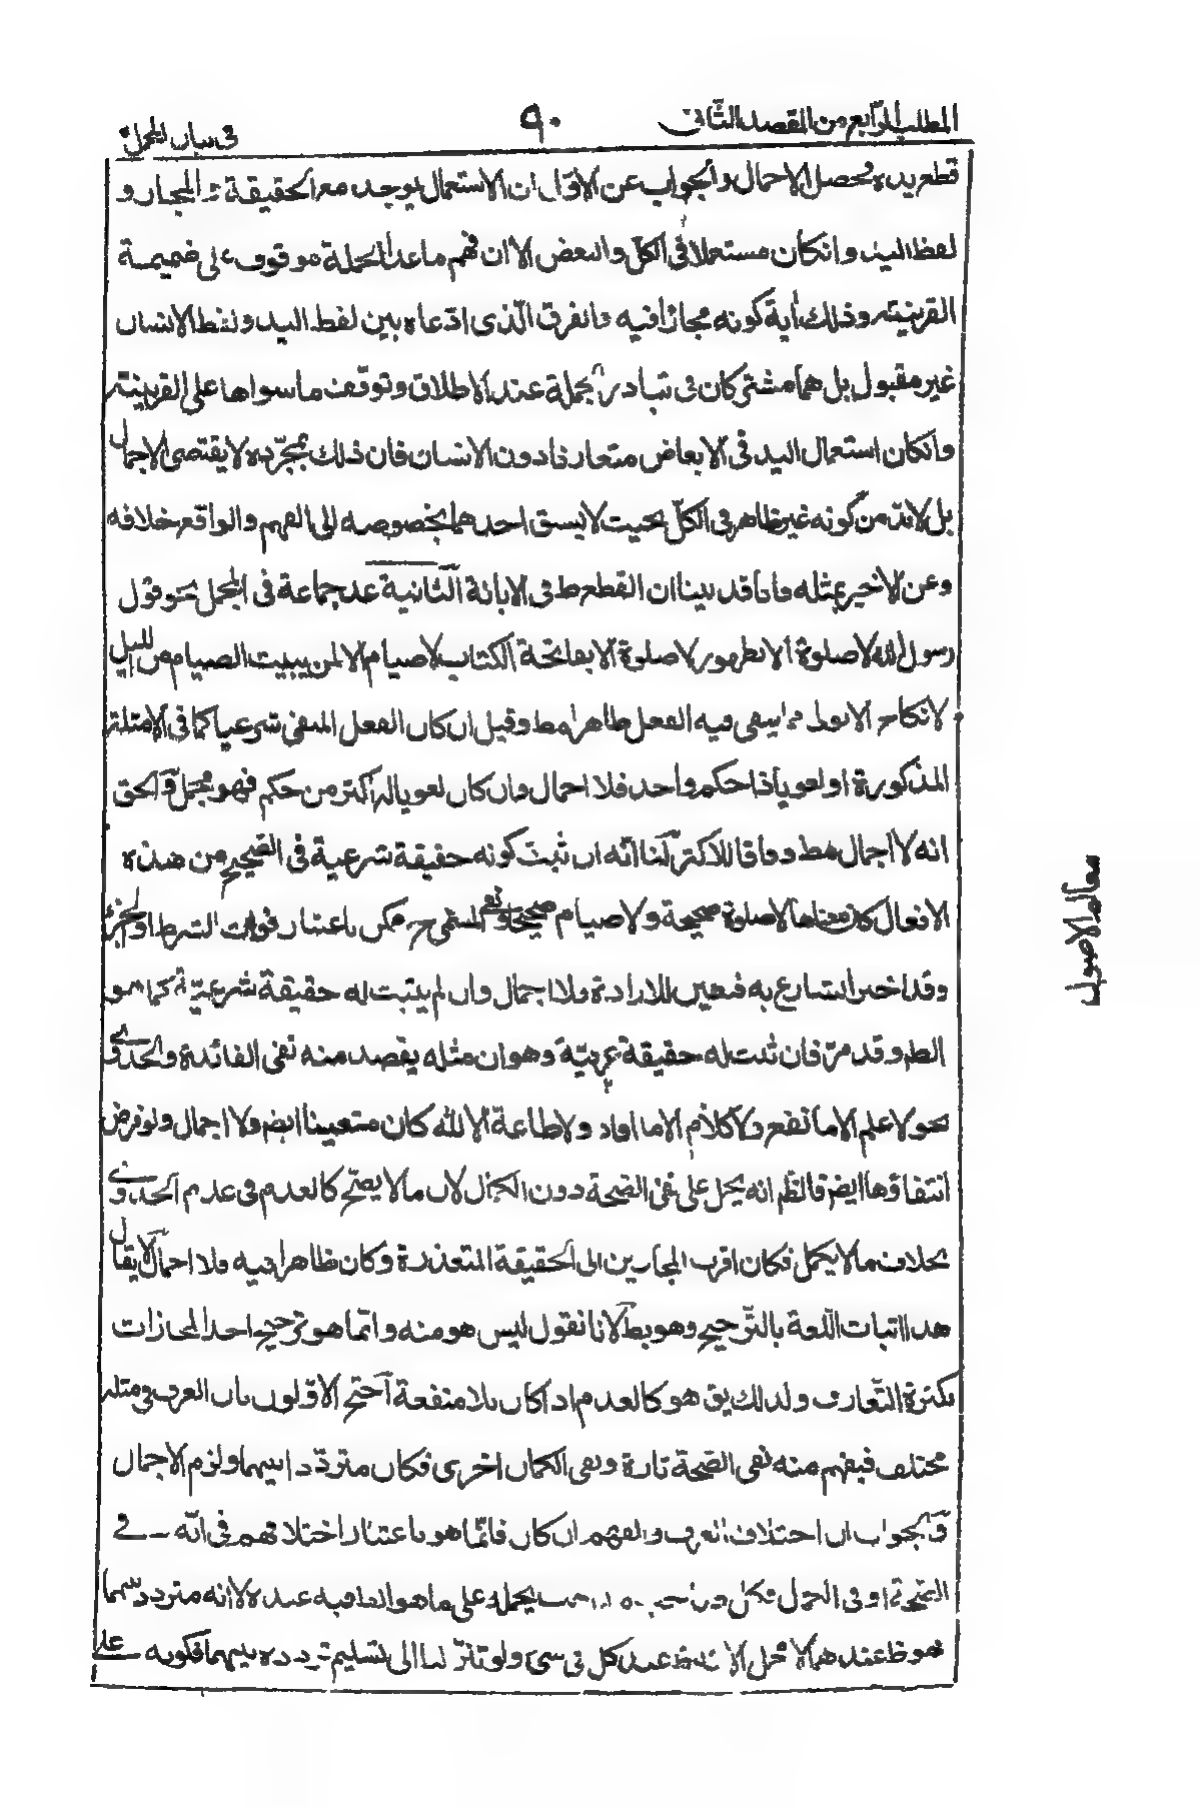 المطلب الرّابع من المقصد الثّانى
٩٠
فى بيان المجمل
قطع يده فحصل الاجمال والجواب عن الاوّل ان الاستعمال يوجد مع الحقيقة و المجاز و
لفظ اليد وانكان مستعملا فى الكل والبعض الا ان فهم ما عدا الجملة موقوف على ضميمة
القرينة وذلك آية كونه مجازا فيه والفرق الّذى ادّعاه بين لفظ اليد ولفظ الانسان
غير مقبول بل هما مشتركان فى تبادر الجملة عند الاطلاق وتوقّف ما سواها على القرينة
وانكان استعمال اليد فى الابعاض متعارفا دون الانسان فان ذلك بمجرّده لا يقتضى الاجمال
بل لابدّ من كونه غير ظاهر فى الكلّ بحيث لا يسبق احدهما بخصوصه الى الفهم والواقع خلافه
وعن الاخير بمثله فانا قد بينا ان القطع ط فى الابانة الثانية عد جماعة فى المجمل نحو قول
رسول الله لا صلوة الا بطهور لا صلوة الا بفاتحة الكتاب لا صيام الا لمن يبيت الصيام من الليل
لا نكاح الا بولى مما ينفى فيه الفعل ظاهرا مط وقيل ان كان الفعل المنفى شرعيا كما فى الامثلة
المذكورة او لغويا ذا حكم واحد فلا اجمال وان كان لغويا له اكثر من حكم فهو مجمل والحق
انه لا اجمال مط وفاقا للاكثر لنا انّه ان ثبت كونه حقيقة شرعية فى الصحيح من هذه
الافعال كان معناه لا صلوة صحيحة ولا صيام صحيحا ونفى المسمى ح ممكن باعتبار فوات الشرط او الجزء
وقد اخبر الشارع به فتعين للارادة فلا اجمال وان لم يثبت له حقيقة شرعيّة كما هو
الظ وقد مرّ فان ثبت له حقيقة عرفيّة وهو ان مثله يقصد منه نفى الفائدة والجدوى
نحو لا علم الا ما نفع ولا كلام الا ما افاد ولا طاعة الا لله كان متعينا ايض ولا اجمال ولو فرض
انتفاؤها ايض فالظ انه يحمل على نفى الصّحة دون الكمال لان ما لا يصحّ كالعدم فى عدم الجدوى
بخلاف ما لا يكمل فكان اقرب المجازين الى الحقيقة المتعذرة وكان ظاهرا فيه فلا اجمال لا يقال
هذا اثبات اللّغة بالتّرجيح وهو بط لانا نقول ليس هو منه وانّما هو ترجيح احد المجازات
بكثرة التّعارف ولذلك يق هو كالعدم اذا كان بلا منفعة احتجّ الاوّلون بان العرف فى مثله
مختلف فيفهم منه نفى الصّحة تارة ونفى الكمال اخرى فكان متردّدا بينهما ولزم الاجمال
والجواب ان اختلاف العرف والفهم ان كان فانّما هو باعتبار اختلافهم فى انّه
الصّحة او فى الكمال فكل يحمله على ما هو الظ فيه عنده لا انه متردد بينهما
فهو ظ عندهما لا مجمل الا انه ظ عند كل فى شىء ولو تنزّلنا الى تسليم تردده بينهما فكونه على
معالم الاصول